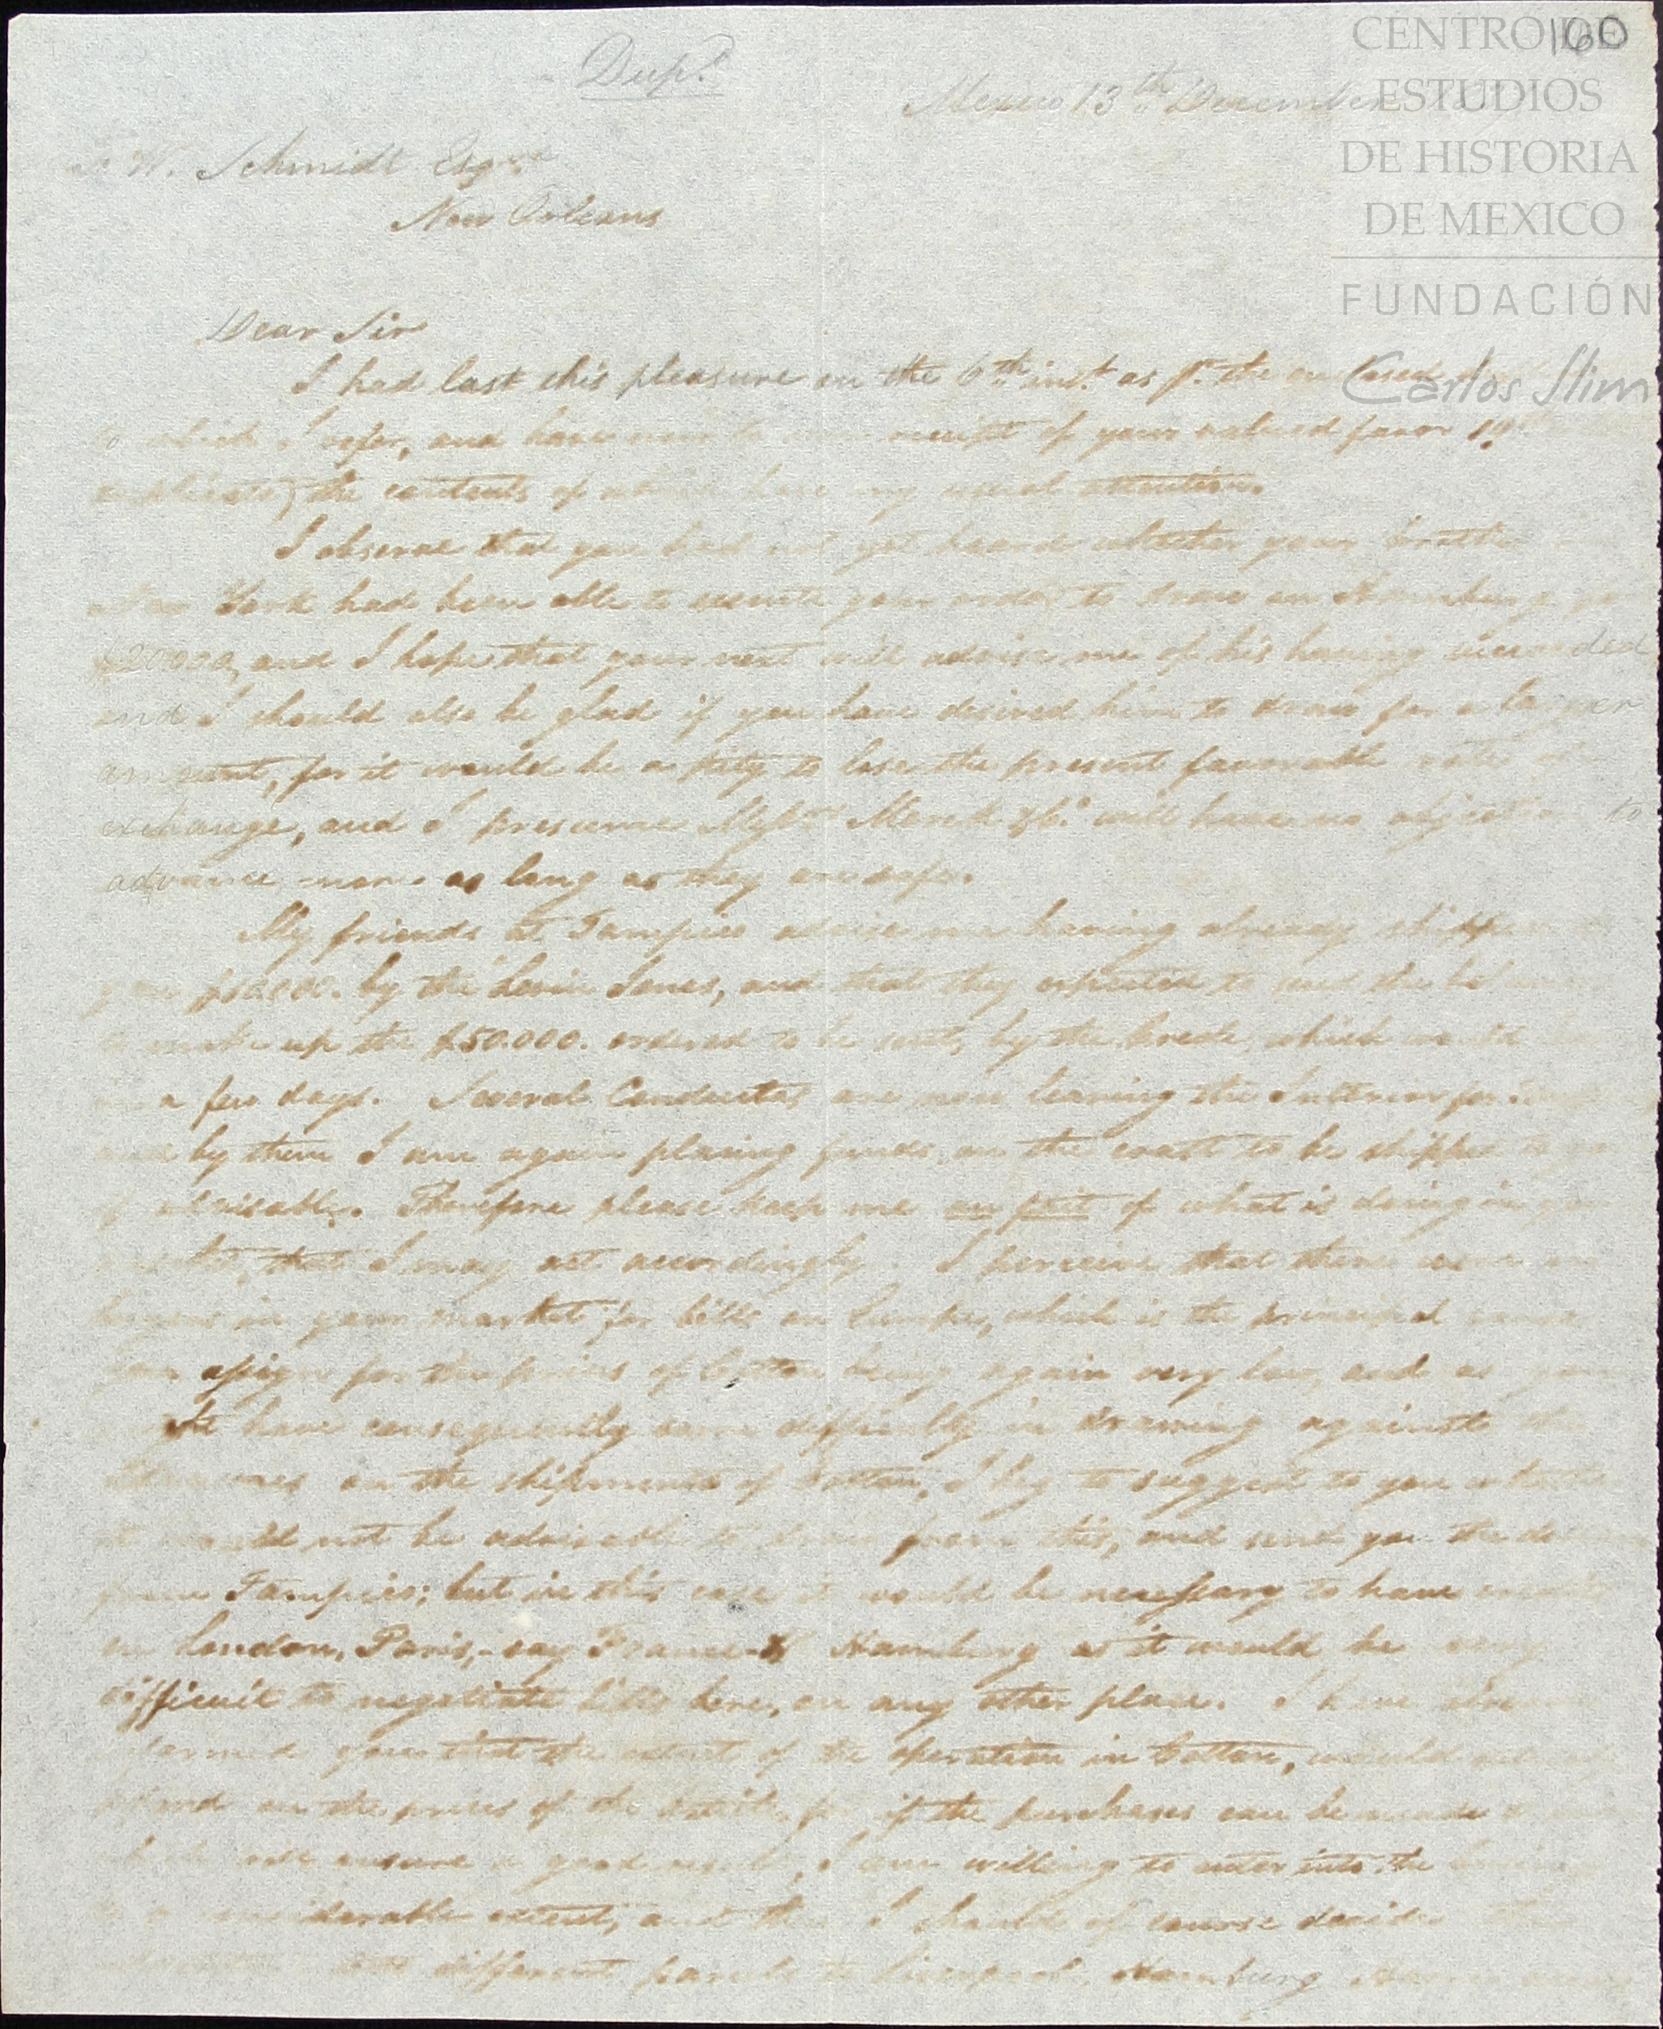 160
CENTRO DE
ESTUDIOS
DE HISTORIA
DE MEXICO
FUNDACIÓN
Carlos Slim
Dup.
Mexico 13th December
W. Schmidt Esqre
New Orleans
Dear Sir
I had last this pleasure on the 6th inst as pr. the enclosed
to which I refer, and have now to receipt of your valued favor 19
duplicate) the contents of which have my usual attention.
I observe that you had not yet heard whether your brother
New York had been able to execute your order to draw on Hamburg for
$20.000, and I hope that your next will advise me of his having succeeded
and I should also be glad if you have desired him to draw for a larger
amount, for it would be a pity to lose the present favorable rate of
exchange, and I presume Messrs Merck & Co. will have no objection to
advance more as long as they are safe.
My friends at Tampico advise me having already shipped
you $10.000. by the Lovin Jones, and that they expected to send the balance
to make up the $50.000. ordered to be sent, by the Creole, which would
in a few days. Several Conductas are now leaving the Interior for
and by them I am again placing funds on the coast to be shipped to you
if advisable. Therefore please keep me au fait of what is doing in your
market, that I may act accordingly. I perceive that there were no
buyers in your market for bills on Europe, which is the principal cause
you assign for the prices of Cotton being again very low, and as you
have consequently some difficulty in drawing against the
advances on the shipments of Cotton, I beg to suggest to you whether
it would not be advisable to draw from this, and send you the dollars
from Tampico; but in this case it would be necessary to have credits
on London, Paris, - say France - & Hamburg as it would be very
difficult to negotiate bills here, on any other place. I have already
informed you that the extent of the operation in Cotton, would
depend on the prices of the article, for if the purchases can be made
which will ensure a good result, I am willing to enter into the business
to a considerable extent, and then I should of course decide
different parcels to Liverpool, Hamburg